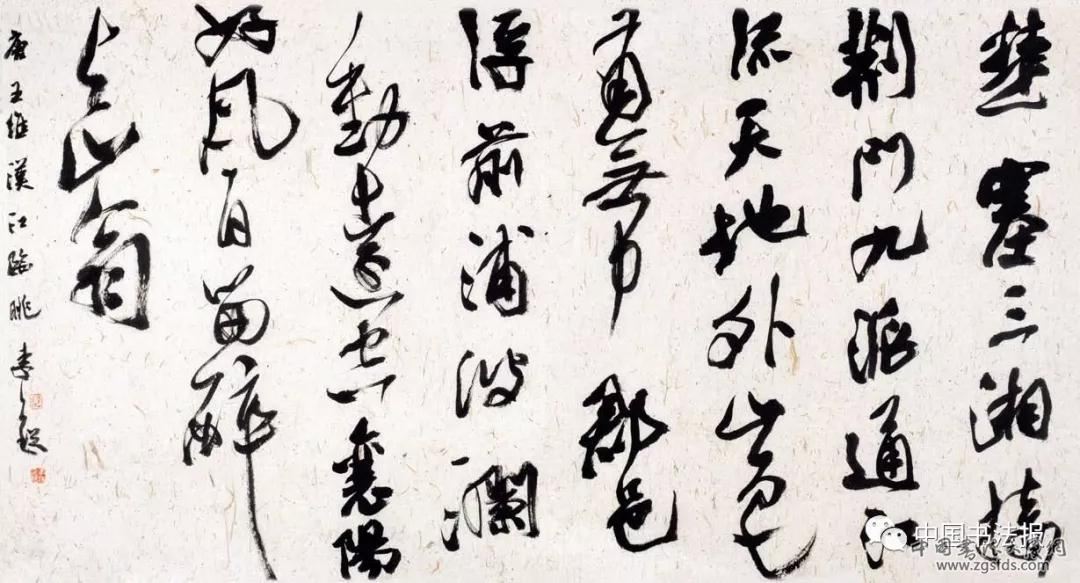 楚塞三湘接
荊門九派通江
流天地外山色
有無中郡邑
浮前浦波瀾
動遠空襄陽
好風日留醉
与山翁
唐王維漢江臨眺 李
中国书法报
www.zgsfds.com